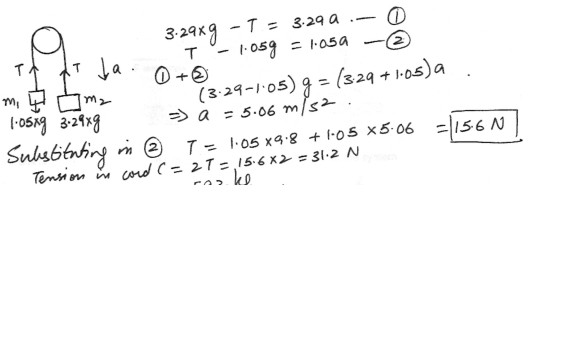 3.29×g − T = 3.29a — ①
T − 1.05g = 1.05a — ②
T T ↓a .
① + ②
(3.29-1.05) g = (3.29 + 1.05) a .
m₁ m₂
⇒ a = 5.06 m/s² .
1.05×g 3.29×g
Substituting in ② T = 1.05×9.8 + 1.05×5.06 = 15.6 N
Tension in cord C = 2T = 15.6×2 = 31.2 N